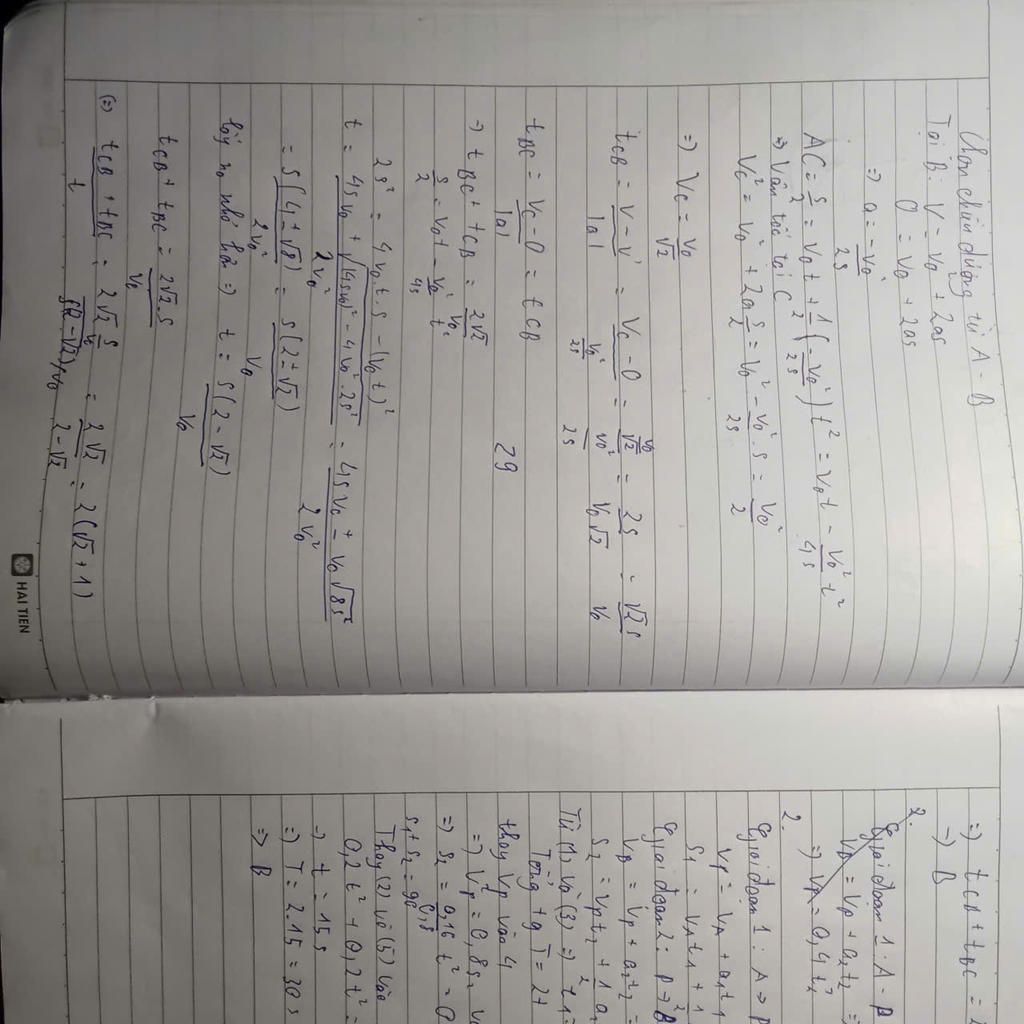 Chọn chiều dương từ A - B
Tại B: V = V₀² + 2as
0 = V₀ + 2as
=> a = -V₀² / 2s
AC = s/2 = V₀t + 1/2 (-V₀²/2s) t² = V₀t - V₀²/4s t²
=> Vân tốc tại C
Vc² = V₀² + 2a s/2 = V₀² - V₀²/2s . s = V₀²/2
=> Vc = V₀/√2
tCB = V - V' / |a| = Vc - 0 / V₀²/2s = V₀/√2 / V₀²/2s = 2s / V₀√2 = √2 s / V₀
tBC = Vc - 0 / |a| = tCB
29
-> tBC + tCB = 2√2 s/V₀
s/2 = V₀t - V₀²/4s t²
2s² = 4V₀.t.s - (V₀t)²
t = 4sV₀ ± √(4sV₀)² - 4V₀².2s² / 2V₀² = 4sV₀ ± V₀√8s² / 2V₀²
= s(4 ± √8) / 2V₀ = s(2 ± √2) / V₀
lấy n₀ nhỏ hơn => t = s(2 - √2) / V₀
tCB + tBC = 2√2.s / V₀
(=) tCB + tBC / t = 2√2 s/V₀ / s(2-√2)/V₀ = 2√2 / 2-√2 = 2(√2 + 1)
HAI TIEN
=> tCB + tBC =
-> B
2.
Giai đoạn 1: A - P
VB = Vp + a₂t₂ =
=> Vp = 0,4t₂
2.
Giai đoạn 1: A -> P
Vp = VA + a₁t₁
S₁ = VAt₁ + 1
Giai đoạn 2: P -> B
VB = Vp + a₂t₂ =
S₂ = Vpt₂ + 1/2 a
Từ (1) và (3) => t₁ =
Tổng tg T = 2t
thay Vp vào 4
=> Vp = 0,8
=> S₂ = 0,16 t² = 0
S₁ + S₂ = 90
Thay (2) và (5) vào
0,2t² + 0,2t² =
-> t = 15s
=> T = 2.15 = 30s
=> B